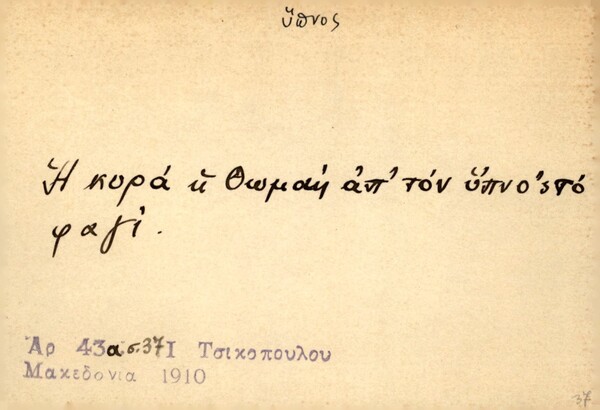 ὕπνος
Ἡ κυρά ἡ Θωμαή ἀπ' τόν ὕπνο 'ς τό
φαγί.
Ἀρ 43α σ. 37 Ι Τσικοπουλου
Μακεδονια 1910
37